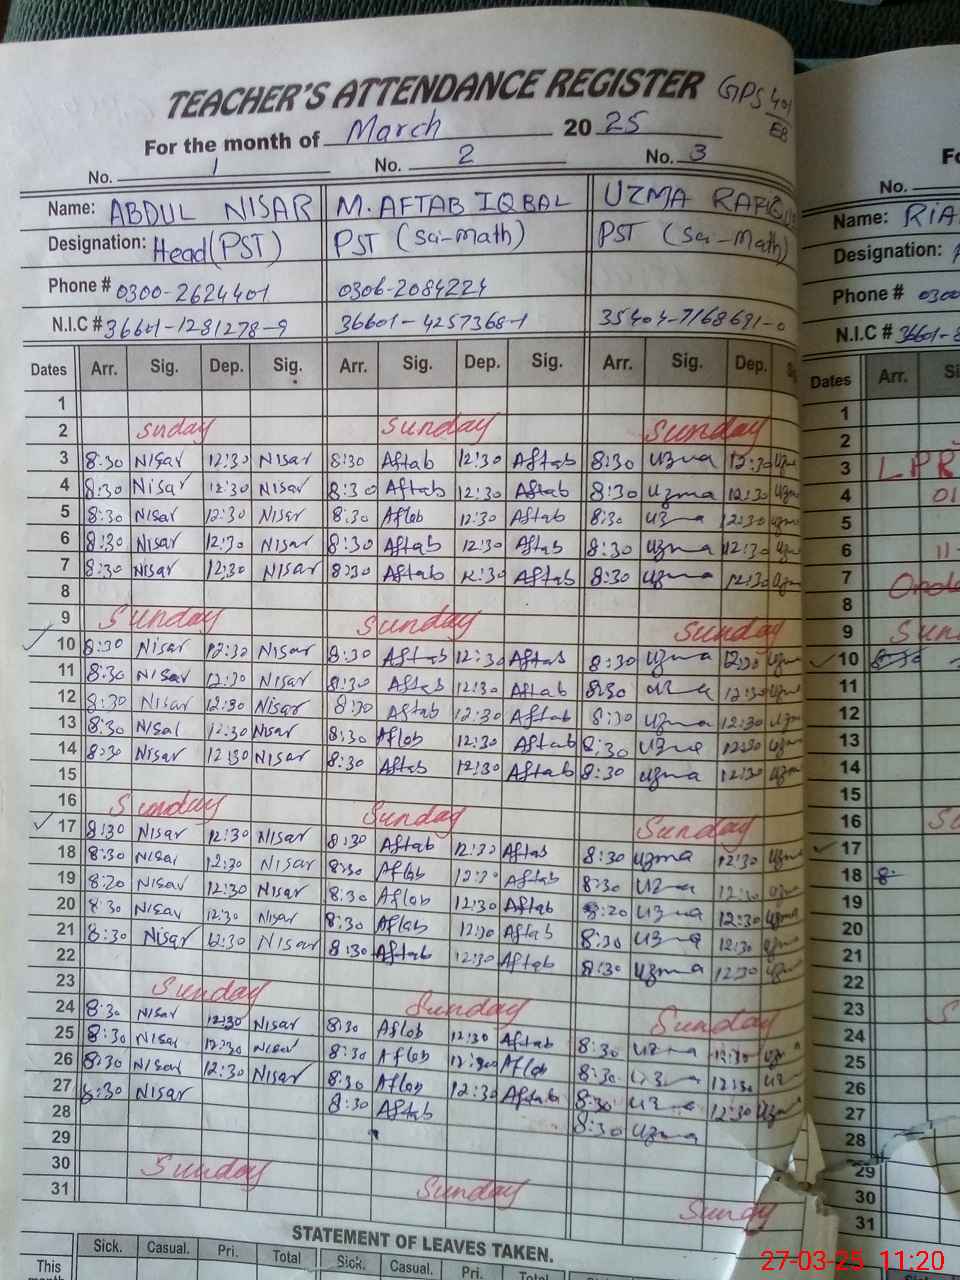 TEACHER'S ATTENDANCE REGISTER GPS 401/EB
For the month of March 2025
No. 1 No. 2 No. 3
Name: ABDUL NISAR M. AFTAB IQBAL UZMA RAFIQ
Designation: Head (PST) PST (Sci-Math) PST (Sci-Math)
Phone # 0300-2624401 0306-2084224
N.I.C # 36601-1281278-9 36601-4257368-1 35404-7168691-0
Dates Arr. Sig. Dep. Sig. Arr. Sig. Dep. Sig. Arr. Sig. Dep.
1
2 Sunday Sunday Sunday
3 8:30 Nisar 12:30 Nisar 8:30 Aftab 12:30 Aftab 8:30 Uzma 12:30 Uzma
4 8:30 Nisar 12:30 Nisar 8:30 Aftab 12:30 Aftab 8:30 Uzma 12:30 Uzma
5 8:30 Nisar 12:30 Nisar 8:30 Aftab 12:30 Aftab 8:30 Uzma 12:30 Uzma
6 8:30 Nisar 12:30 Nisar 8:30 Aftab 12:30 Aftab 8:30 Uzma 12:30 Uzma
7 8:30 Nisar 12:30 Nisar 8:30 Aftab 12:30 Aftab 8:30 Uzma 12:30 Uzma
8
9 Sunday Sunday Sunday
10 8:30 Nisar 12:30 Nisar 8:30 Aftab 12:30 Aftab 8:30 Uzma 12:30 Uzma
11 8:30 Nisar 12:30 Nisar 8:30 Aftab 12:30 Aftab 8:30 Uzma 12:30 Uzma
12 8:30 Nisar 12:30 Nisar 8:30 Aftab 12:30 Aftab 8:30 Uzma 12:30 Uzma
13 8:30 Nisar 12:30 Nisar 8:30 Aftab 12:30 Aftab 8:30 Uzma 12:30 Uzma
14 8:30 Nisar 12:30 Nisar 8:30 Aftab 12:30 Aftab 8:30 Uzma 12:30 Uzma
15
16 Sunday Sunday Sunday
17 8:30 Nisar 12:30 Nisar 8:30 Aftab 12:30 Aftab 8:30 Uzma 12:30 Uzma
18 8:30 Nisar 12:30 Nisar 8:30 Aftab 12:30 Aftab 8:30 Uzma 12:30 Uzma
19 8:20 Nisar 12:30 Nisar 8:30 Aftab 12:30 Aftab 8:20 Uzma 12:30 Uzma
20 8:30 Nisar 12:30 Nisar 8:30 Aftab 12:30 Aftab 8:30 Uzma 12:30 Uzma
21 8:30 Nisar 12:30 Nisar 8:30 Aftab 12:30 Aftab 8:30 Uzma 12:30 Uzma
22
23 Sunday Sunday Sunday
24 8:30 Nisar 12:30 Nisar 8:30 Aftab 12:30 Aftab 8:30 Uzma 12:30 Uzma
25 8:30 Nisar 12:30 Nisar 8:30 Aftab 12:30 Aftab 8:30 Uzma 12:30 Uzma
26 8:30 Nisar 12:30 Nisar 8:30 Aftab 12:30 Aftab 8:30 Uzma 12:30 Uzma
27 8:30 Nisar 8:30 Aftab 8:30 Uzma
28
29
30 Sunday Sunday Sunday
31
STATEMENT OF LEAVES TAKEN.
Sick. Casual. Pri. Total Sick. Casual. Pri. Total Sick. Casual.
This
No.
Name: RIA
Designation:
Phone # 0300
N.I.C # 36601-8
Dates Arr.
1
2
3 LPR
4 01
5
6 11-
7
8
9 Sun
10
11
12
13
14
15
16 Su
17
18 8:
19
20
21
22
23 S
24
25
26
27
28
29
30
31
27-03-25 11:20